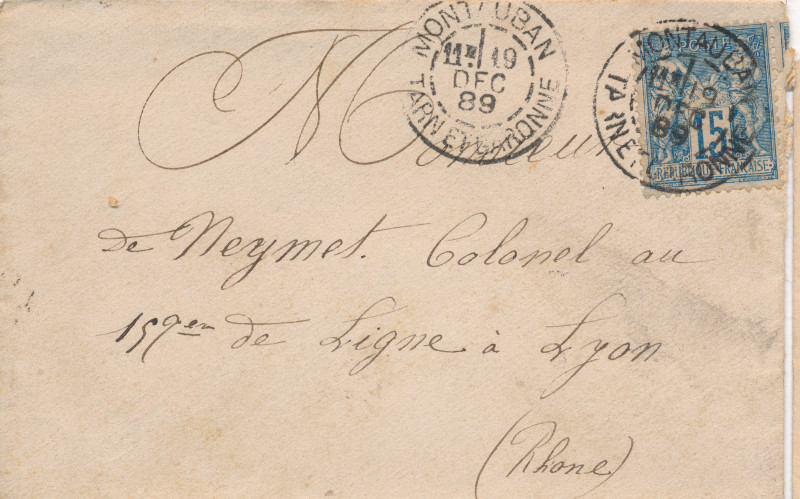 MONTAUBAN
11E 19
DEC
89
TARN ET GARONNE
MONTAUBAN
11E 19
DEC
89
TARN ET GARONNE
15
REPUBLIQUE FRANCAISE
Monsieur
de Neymet. Colonel au
157em de Ligne à Lyon
(Rhone)